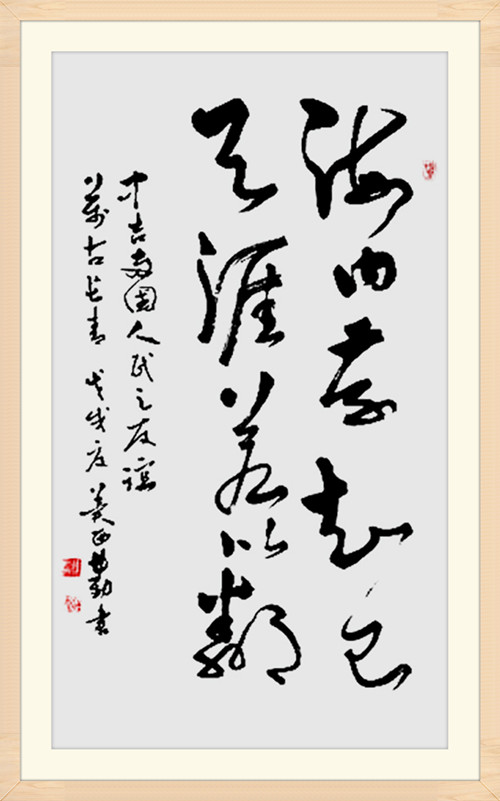 海内存知己
天涯若比鄰
中吉两国人民之友谊
萬古长青 戊戌夏 书